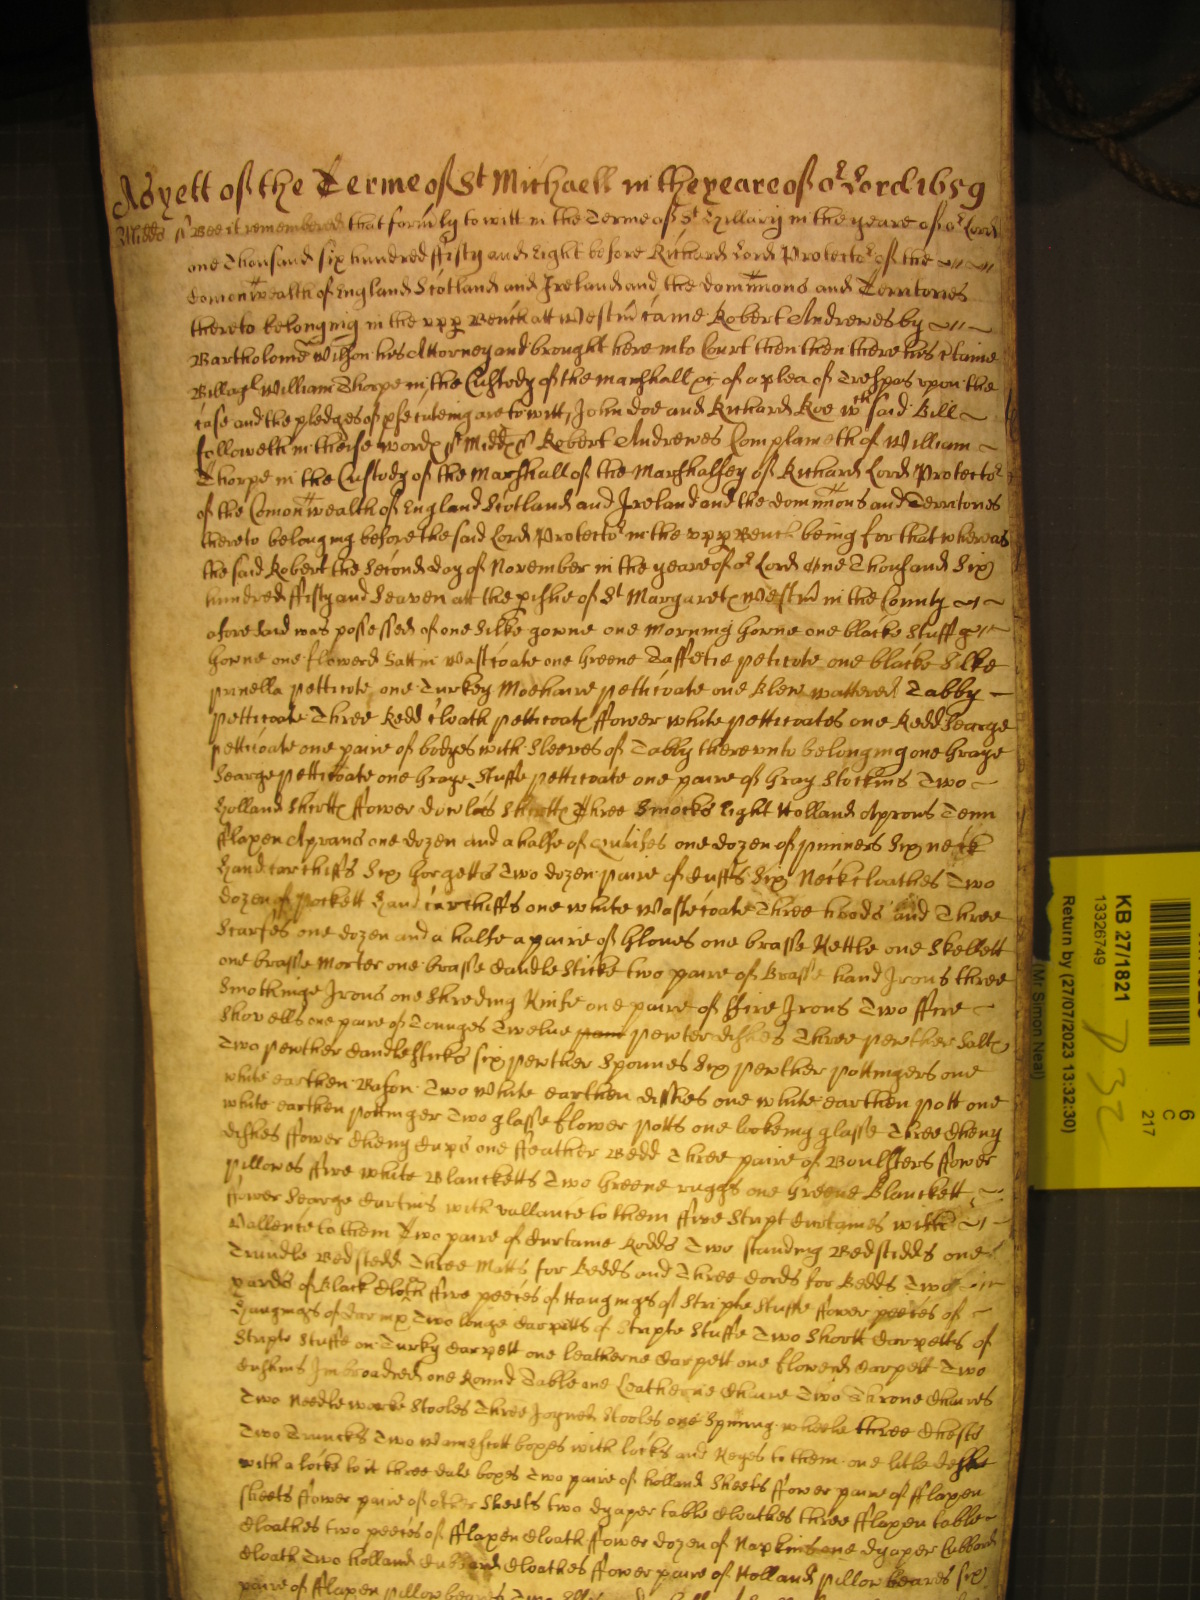 As yett of the Terme of St Michaell in the yeare of or Lord 1659
Midds ss Bee it remembered that formerly to witt in the Terme of St Hillary in the yeare of or Lord
one Thousand six hundred ffifty and Eight before Richard Lord Protector of the
Comonwealth of England Scotland and Ireland and the dominions and Territories
thereto belonging in the vpp Bench att Westm came Robert Andrewes by
Bartholome Wilson his Attorney and brought here into Court then then there his c͠taine
Bill agt William Thorpe in the Custody of the Marshall &c of a plea of Trespas vpon the
case and the pledges of psecuteing are to witt John Doe and Richard Roe wch said Bill
followeth in theise words ss Midds ss Robert Andrewes Complaineth of William
Thorpe in the Custody of the Marshall of the Marshalsey of Richard Lord Protector
of the Comonwealth of England Scotland and Ireland and the dominions and Territories
thereto belonging before the said Lord Protector in the vpp Bench being for that whereas
the said Robert the Second day of November in the yeare of or Lord One Thousand Six
hundred ffifty and Seaven att the pishe of St Margarets Westm in the County
aforesaid was possessed of one Silke gowne one Morning Gowne one blacke Stuff
Gowne one flowerd Sattin Wastcoate one Greene Taffetie peticote one blacke Silke
prunella petticote one Turkey Moehaire petticoate one Blew wattered Tabby
petticoate Three Redd cloath petticoats ffower white petticoates one Redd Searge
petticoate one paire of bodyes with Sleeves of Tabby therevnto belonging one Graye
Searge petticoate one Graye Stuffe petticoate one paire of Gray Stockins Two
Holland Shirts ffower dowlas Shirts Three Smocks Eight Holland Aprons Tenn
fflaxen Aprans one dozen and a halfe of Quaifes one dozen of pinners Six neck
Handcarchiffs Six Gorgetts Two dozen paire of Cuffs Six Neckcloathes Two
dozen of Pockett Handcarchiffs one white Wastcoate Three hoods and Three
Scarfes one dozen and a halfe a paire of Gloues one brasse Kettle one Skellett
one brasse Morter one brasse Candlesticke two paire of Brasse hand Irons three
Smothinge Irons one Shreding Knife one paire of ffire Irons Two ffire
Shovells one paire of Tounges Twelue pewter dishes Three pewther Salts
Two pewther Candlesticks six pewther Spounes Six pewther pottingers one
white earthen Bason Two White earthen disshes one white earthen pott one
white earthen pottinger Two glasse flower potts one lookeing glasse Three Cheny
dishes ffower Cheny Cups one ffeather Bedd Three paire of Boulsters ffower
pillowes ffive white Blancketts Two Greene ruggs one Greene Blanckett
ffower Searge Curtins with vallance to them ffive Stript Curtaines with
Vallence to them Two paire of Curtaine Rodds Two standing Bedstidds one
Trundle Bedstedd Three Matts for Bedds and Three Cords for Bedds Two
yards of Black Cloth ffive peeces of Hangings of Stripte Stuffe ffower peeces of
Hangings of dornix Two longe Carpetts of Stripte Stuffe Two Short Carpetts of
Stripte Stuffe on Turky Carpett one leatherne Carpett one flowerd Carpett Two
Cushins Imbroadred one Round Table one Leatherne Chaire Two Throne Chaires
Two Needleworke Stooles Three Joyned Stooles one Spining wheele three Chests
Two Truncks Two Wainscott boxes with locks and Keyes to them one litle deske
with a locke to it three dale boxes Two paire of Holland Sheets ffower paire of fflaxen
sheets ffower paire of other Sheets two dyaper table Cloathes three fflaxen table
Cloathes two peeces of fflaxen Cloath ffower dozen of Napkins one dyaper Cubbord
Cloath Two Holland Cubbard Cloathes ffower paire of Holland pillow beares six
paire of fflaxen pillow beares
KB 27/1821
13326749
Return by (27/07/2023 13:32:30)
(Mr Simon Neal)
6
C
217